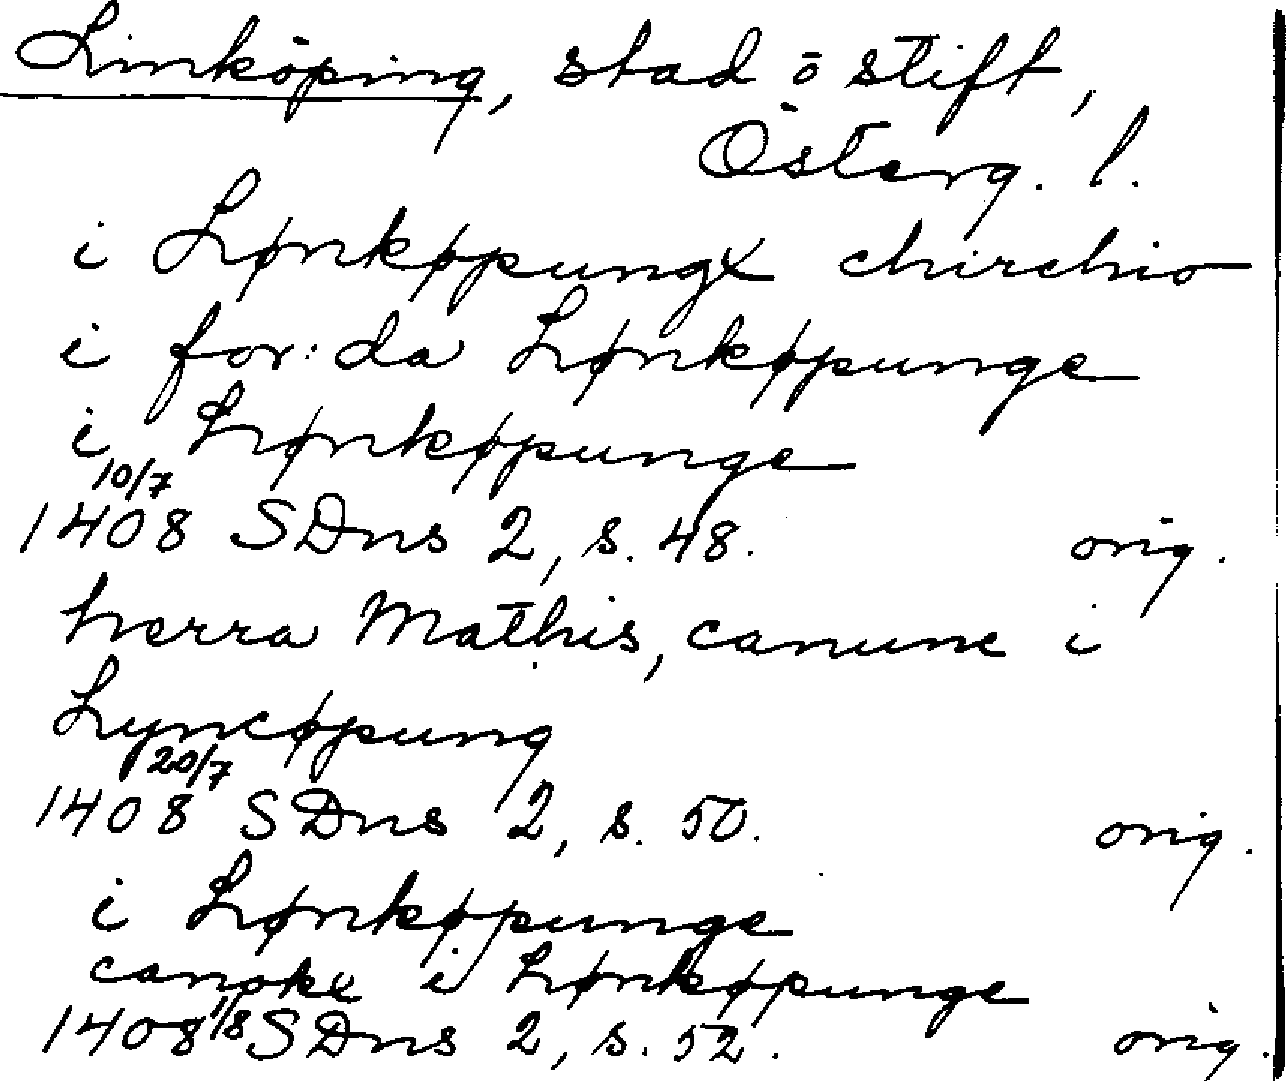 Linköping, stad o stift,
Österg. l.
i Lønkøpungx chirchio
i for:da Lønkøpunge
i Lønkøpunge
10/7
1408 SDns 2, s. 48. orig.
herra Mathis, canunc i
Lyncøpung
20/7
1408 SDns 2, s. 50. orig.
i Lønkøpunge
canoke i Lønkøpunge
1408 1/8 SDns 2, s. 52. orig.